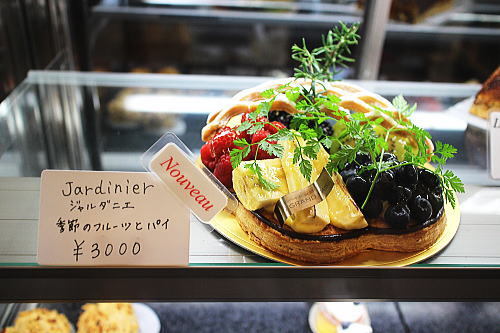 Jardinier
ジャルダニエ
季節のフルーツとパイ
¥3000
Nouveau